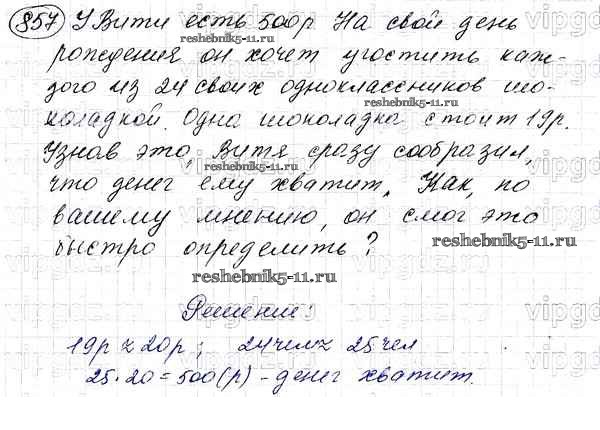 857) У Вити есть 500 р. На свой день
рождения он хочет угостить каж-
дого из 24 своих одноклассников шо-
коладкой. Одна шоколадка стоит 19р.
Узнав это, Витя сразу сообразил,
что денег ему хватит. Как, по
вашему мнению, он смог это
быстро определить?
Решение:
19р ≈ 20р; 24чел ≈ 25чел
25·20=500(р) - денег хватит.
reshebnik5-11.ru
reshebnik5-11.ru
reshebnik5-11.ru
reshebnik5-11.ru
reshebnik5-11.ru